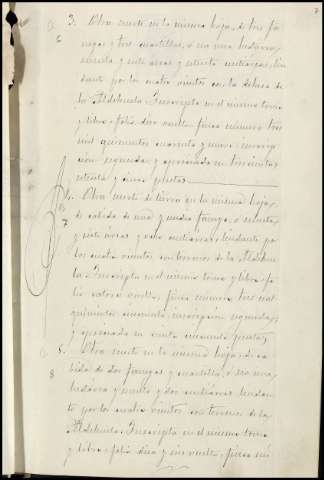 3. Otra suerte en la misma hoja, de tres fa-
negas y tres cuartillos, o sea una hectárea,
y siete areas y setenta centiareas, lin-
dante por los cuatro vientos con la dehesa de
la Aldehuela. Inscripta en el mismo tomo
y libro, folio diez vuelto, finca número tres
mil quinientos cuarenta y nueve, inscrip-
ción segunda y apreciada en trescientas
setenta y cinco pesetas.
6
4. Otra suerte de tierra en la misma hoja,
de cabida de una y media fanega, o sesenta
y siete áreas y ocho centiareas, lindante por
los cuatro vientos con terrenos de la Aldehue-
la. Inscripta en el mismo tomo y libro, fo-
lio catorce vuelto, finca número tres mil
quinientos cincuenta, inscripción segunda,
y apreciada en ciento cincuenta pesetas.
7
5. Otra suerte en la misma hoja, de ca-
bida de dos fanegas y cuartilla, o sea una
hectárea y dos centiareas, lindan-
te por los cuatro vientos con terrenos de la
Aldehuela. Inscripta en el mismo tomo
y libro, folio diez y seis vuelto, finca nú-
8